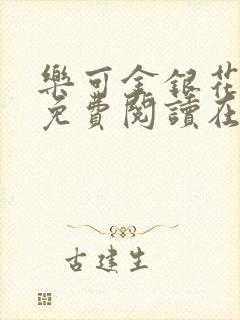 樂可金銀花
免費閱讀在
古建生